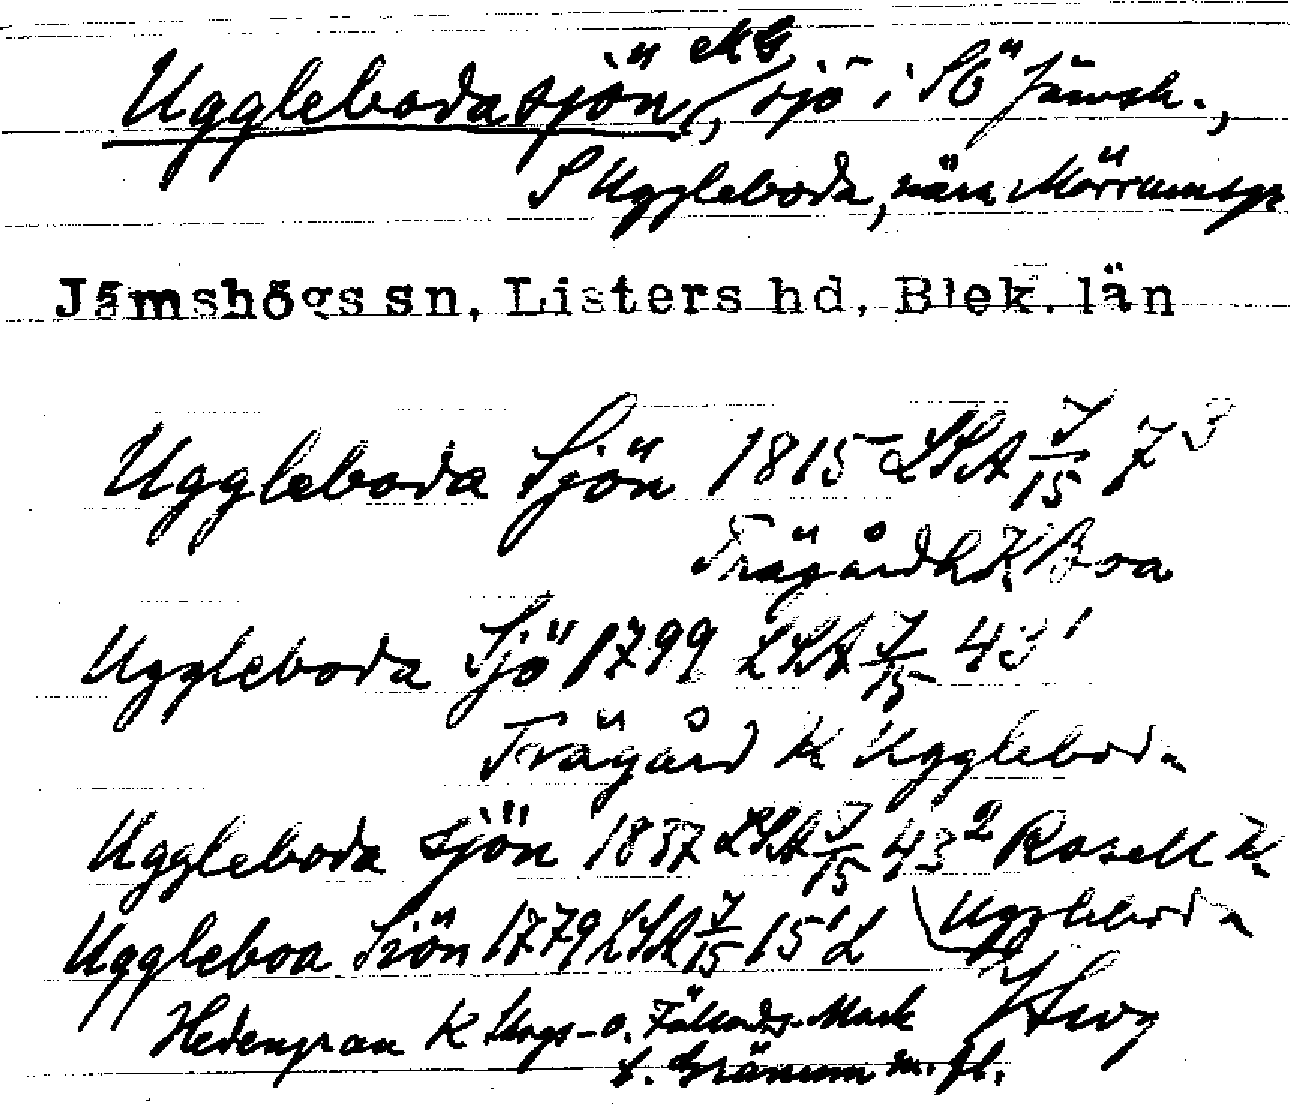 Ugglebodasjön, sjö i SÖ Jämsh.,
S Uggleboda, nära Mörrumsgr
Jämshögs sn, Listers hd, Blek. län
Uggleboda Sjön 1815 LSA J/15 7³
Trägårdh K Boa
Uggleboda Sjö 1799 LSA J/15 43¹
Trägård K Uggleboda
Uggleboda sjön 1837 LSA J/15 43² Rosell K
Uggleboda
Uggleboa Siön 1779 LSA J/15 15¹ L
Hedengran K Skogs- o. Fälads-Mark
t. Gränum m. fl.